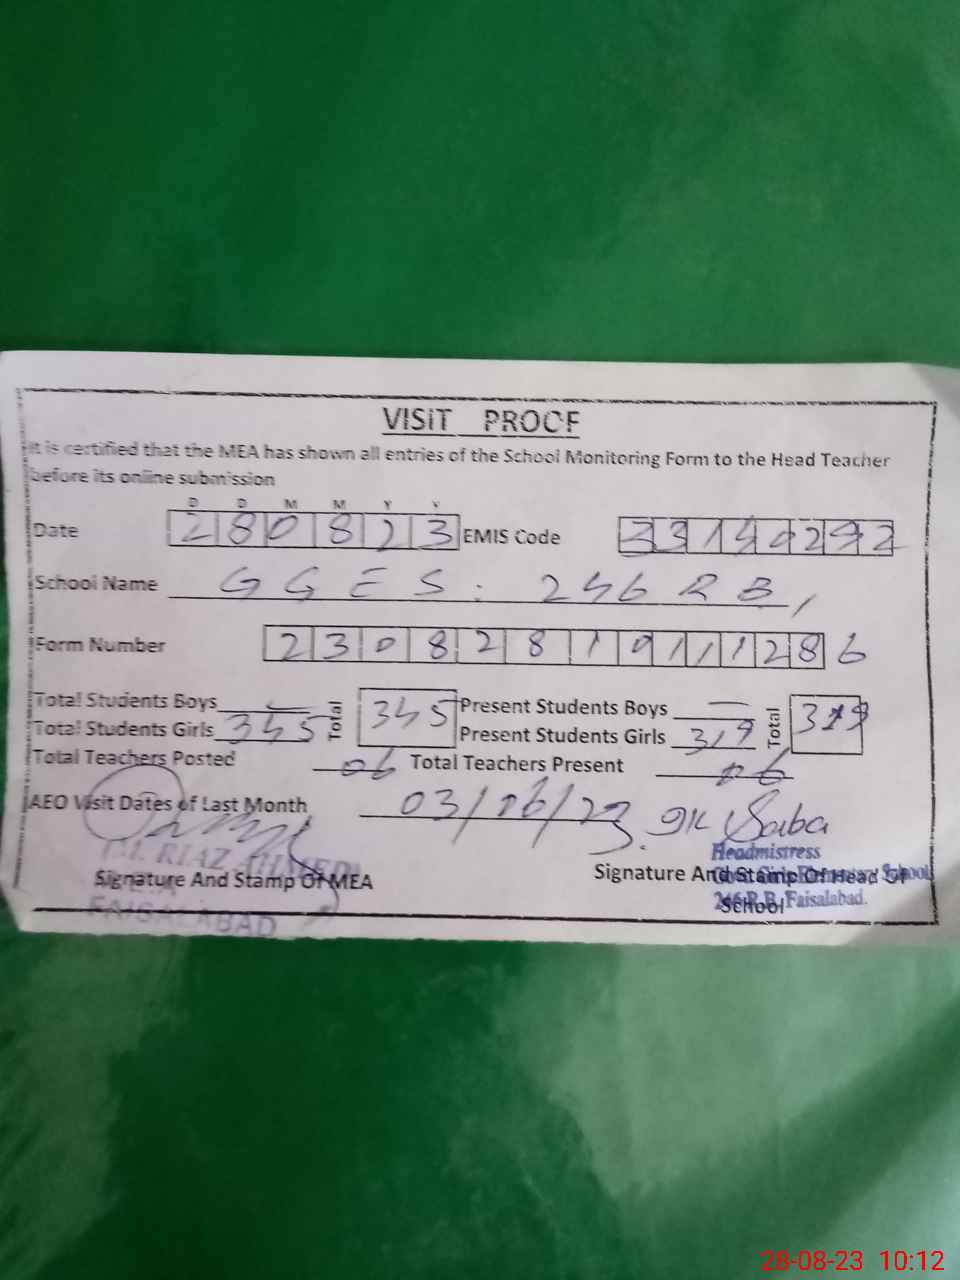 VISIT PROOF
It is certified that the MEA has shown all entries of the School Monitoring Form to the Head Teacher
before its online submission
D D M M Y Y
Date 280823 EMIS Code 33140292
School Name GGES: 246 RB,
Form Number 2308281911286
Total Students Boys — Total 345 Present Students Boys — Total 319
Total Students Girls 345 Present Students Girls 319
Total Teachers Posted 06 Total Teachers Present 06
AEO Visit Dates of Last Month 03/06/23. Saba
M. RIAZ AHMED
Headmistress
Signature And Stamp Of MEA Signature And Stamp Of Head Of
School
FAISALABAD
246 R.B. Faisalabad.
28-08-23 10:12